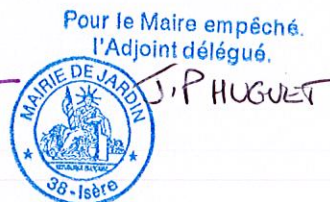 Pour le Maire empêché.
l'Adjoint délégué,
J.P HUGUET
MAIRIE DE JARDIN
38 - Isère